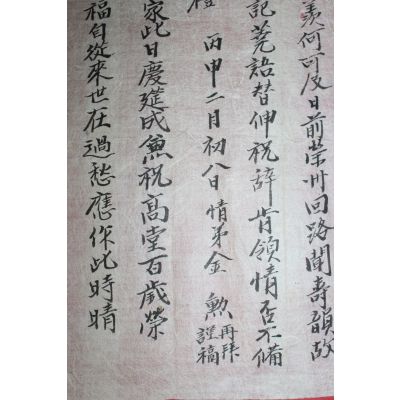 羨何可及日前榮州回路聞壽韻故
記蕘語替伸祝辭肯領情否不備
丙申二月初八日情弟金 勳 再拜謹稿
家此日慶筵成兼祝高堂百歲榮
福自從來世在過愁應作此時晴